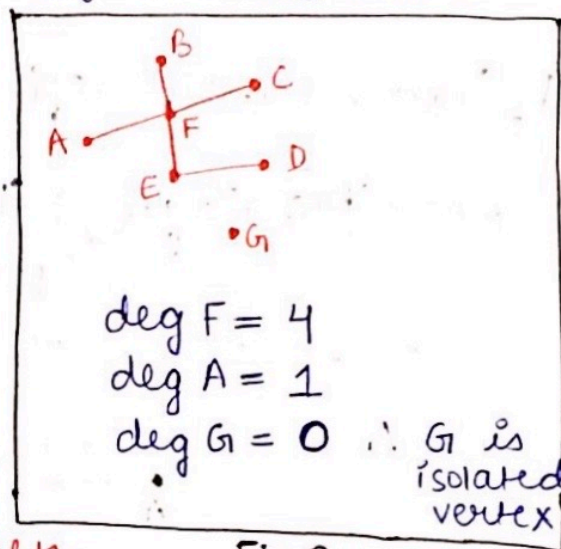 B
C
A
F
D
E
G
deg F = 4
deg A = 1
deg G = 0 ∴ G is
isolated
vertex